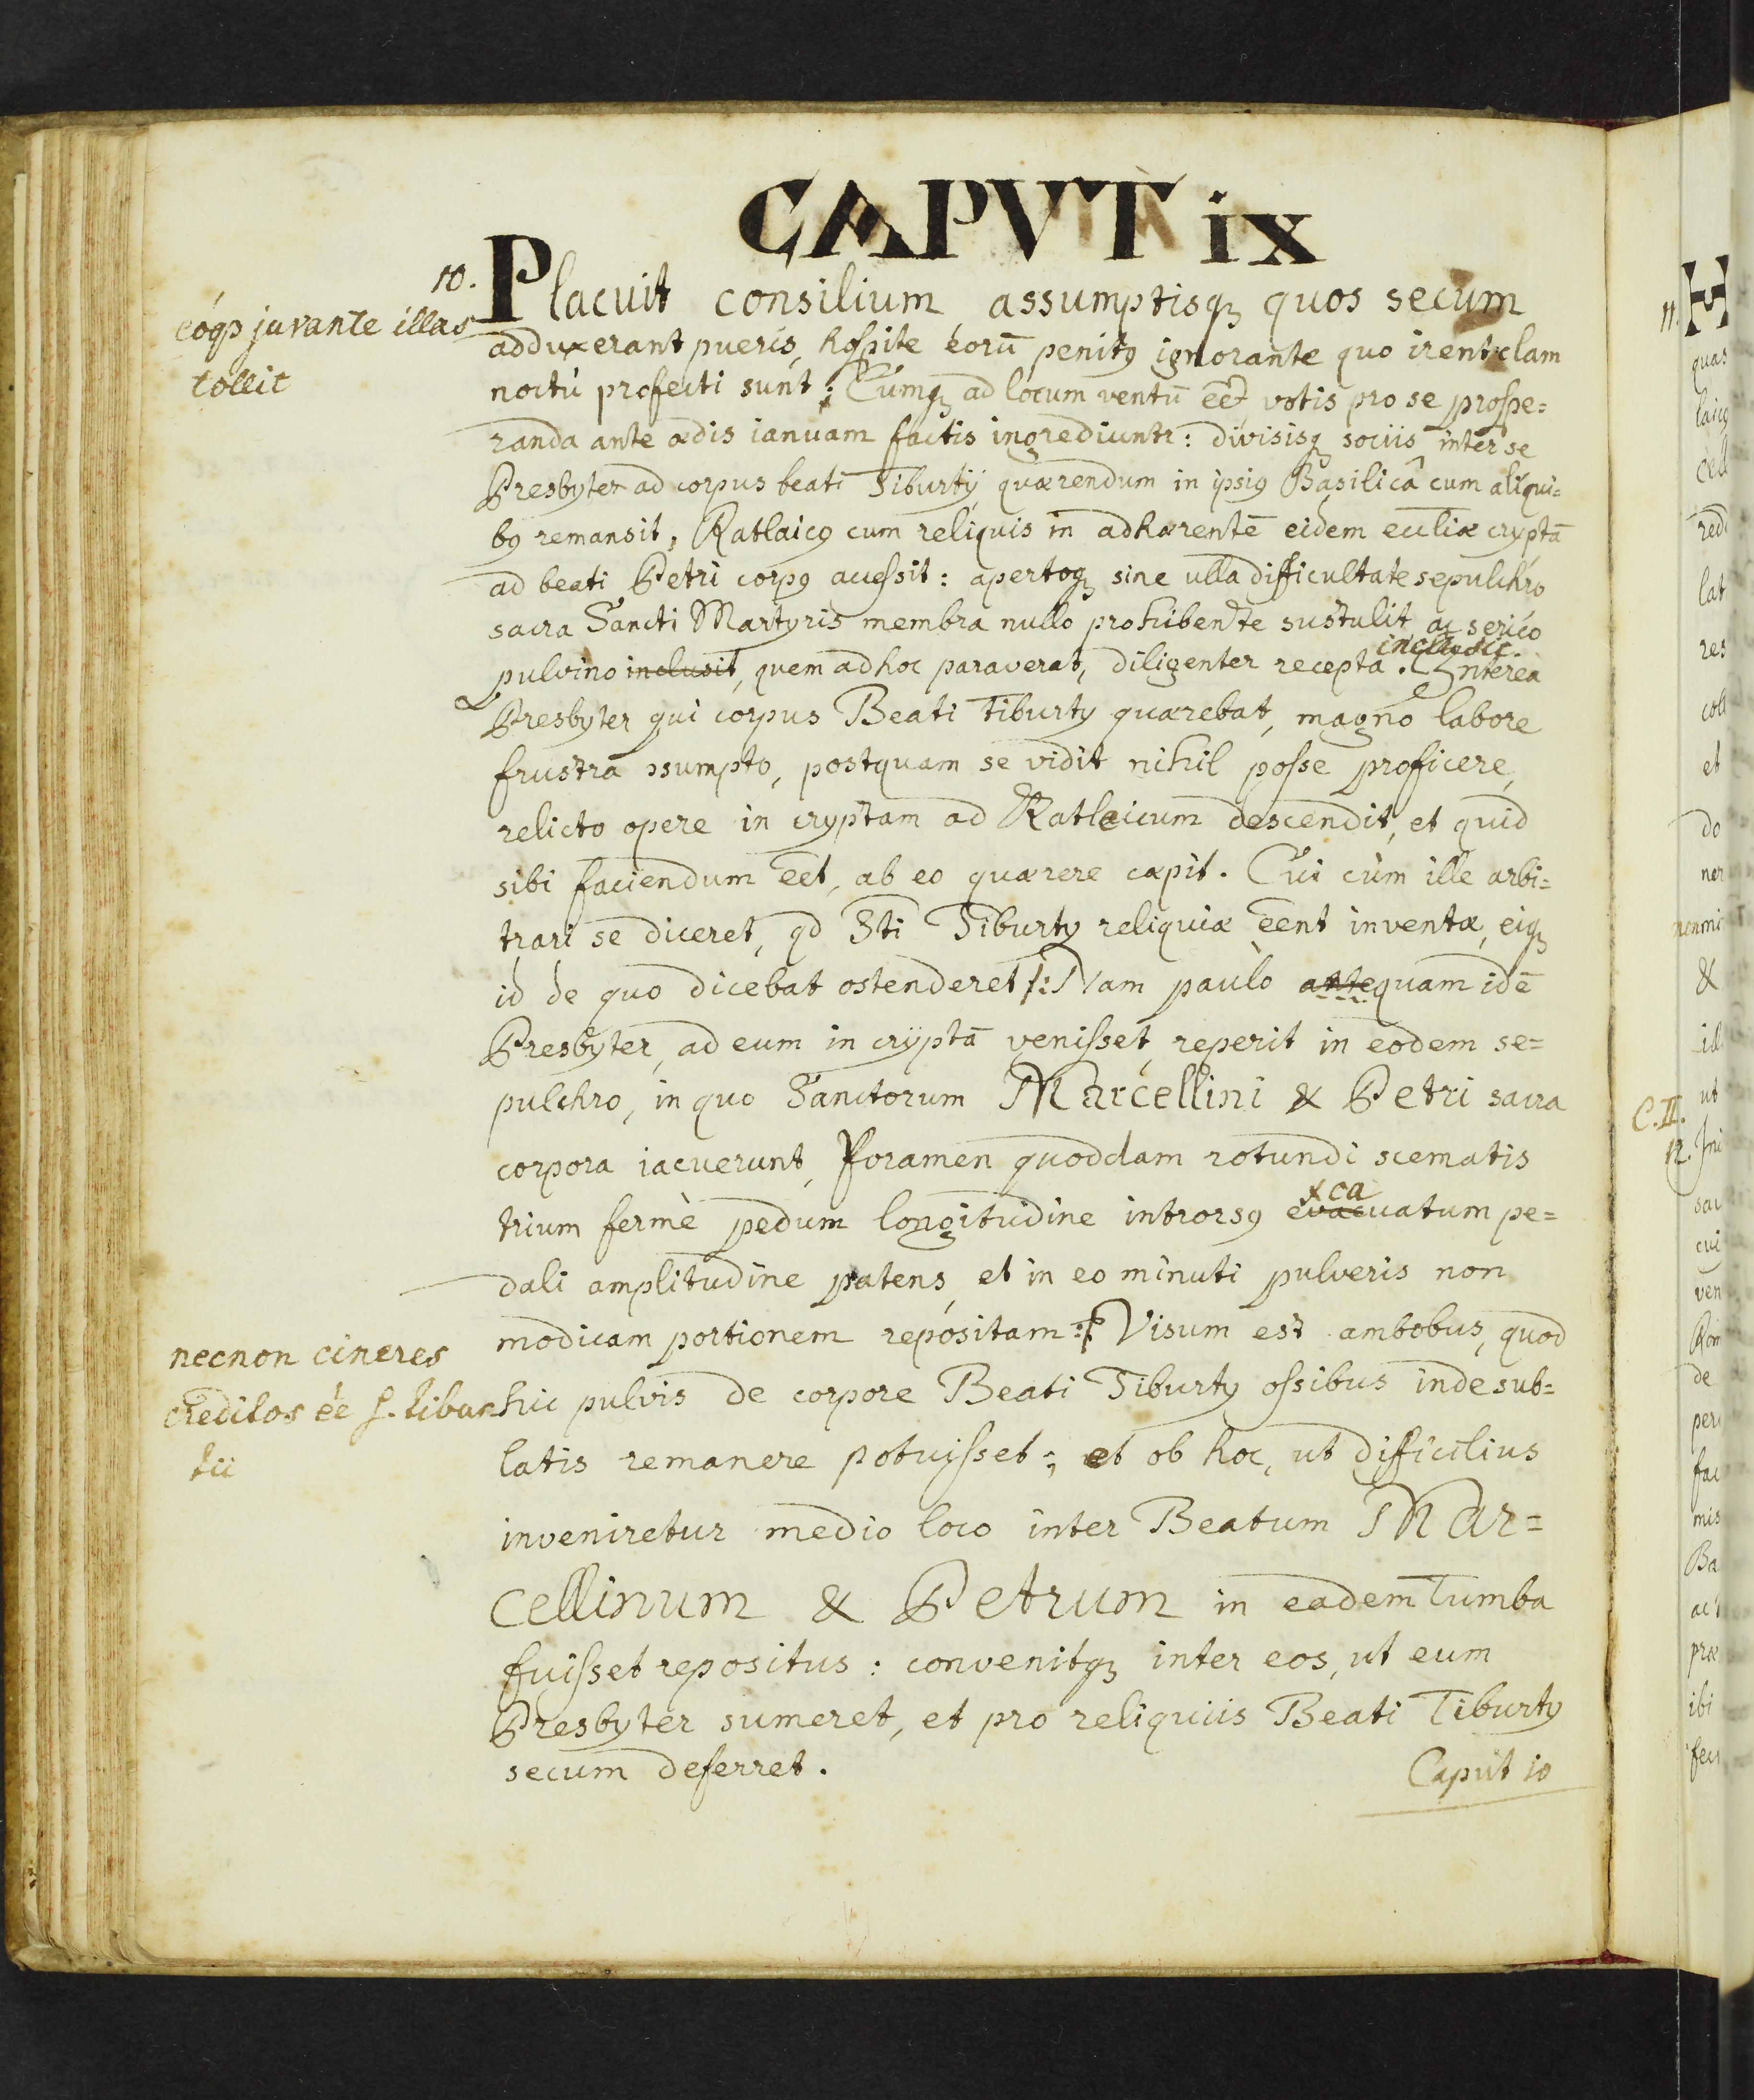 CAPVT ix
10.
Placuit consilium assumptisq; quos secum
eóqȝ juvante illas
tollit
adduxerant pueris, hospite eorū penitꝰ ignorante quo irent, clam
noctù profecti sunt; Cumq; ad locum ventū eēt votis pro se prospe=
randa ante ædis ianuam factis ingrediuntr: divisisq; sociis inter se
Presbyter ad corpus beati Tiburtÿ quærendum in ipsiꝰ Basilicâ cum aliqui=
bꝰ remansit, Ratlaicꝰ cum reliquis in adhærentē eidem eccliæ cryptā
ad beati Petri corpꝰ accessit: apertoq; sine ulla difficultate sepulchro
sacra Sancti Martyris membra nullo prohibente sustulit, ac serico
includit.
pulvino inclusit, quem ad hoc paraverat, diligenter recepta. Interea
Presbyter qui corpus Beati Tiburty quærebat, magno labore
frustra ɔsumpto, postquam se vidit nihil posse proficere,
relicto opere in cryptam ad Ratleicum descendit, et quid
sibi faciendum eēt, ab eo quærere cæpit. Cui cùm ille arbi=
trari se diceret, qd Sti Tiburty reliquiæ eēnt inventæ, eiq;
id de quo dicebat ostenderet /: Nam paulò antequam idē
Presbyter, ad eum in cryptā venisset, reperit in eodem se=
pulchro, in quo Sanctorum Marcellini & Petri sacra
corpora iacuerunt, foramen quoddam rotundi scematis
xca
trium fermè pedum longitudine introrsꝰ evacuatum pe=
dali amplitudine patens, et in eo minuti pulveris non
modicam portionem repositam :/ Visum est ambobus, quod
necnon cineres
creditos eē S. tibur=
tii
hic pulvis de corpore Beati Tiburty ossibus inde sub=
latis remanere potuisset; et ob hoc, ut difficilius
inveniretur medio loco inter Beatum Mar=
cellinum & Petrum in eadem Tumba
fuisset repositus: convenitq; inter eos, ut eum
Presbyter sumeret, et pro reliquiis Beati Tiburty
secum deferret.
Caput 10
11. H
quas
laicꝰ
redd
lat
res
coll
et
do
ner
&
ill
C.II.
ut
12.
sac
cui
ven
Rom
de
per
fac
mis
Ba
præ
ibi